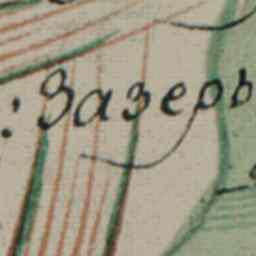 : Зазеръ